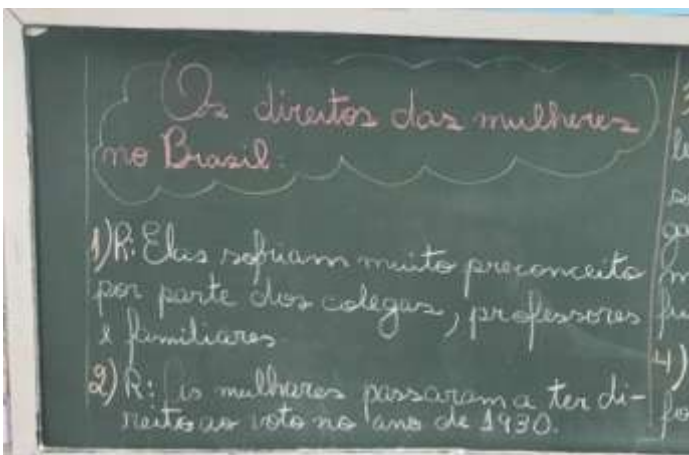 Os direitos das mulheres
no Brasil.
1) R: Elas sofriam muito preconceito
por parte dos colegas, professores
e familiares
2) R: As mulheres passaram a ter di-
reito ao voto no ano de 1930.
4)